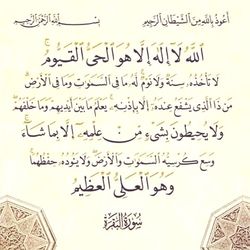 أعوذ بالله من الشيطان الرجيم بسم الله الرحمن الرحيم
الله لا إله إلا هو الحي القيوم
لا تأخذه سنة ولا نوم له ما في السموات وما في الأرض
من ذا الذي يشفع عنده إلا بإذنه يعلم ما بين أيديهم وما خلفهم
ولا يحيطون بشيء من علمه إلا بما شاء
وسع كرسيه السموات والأرض ولا يئوده حفظهما
وهو العلي العظيم
سورة البقرة